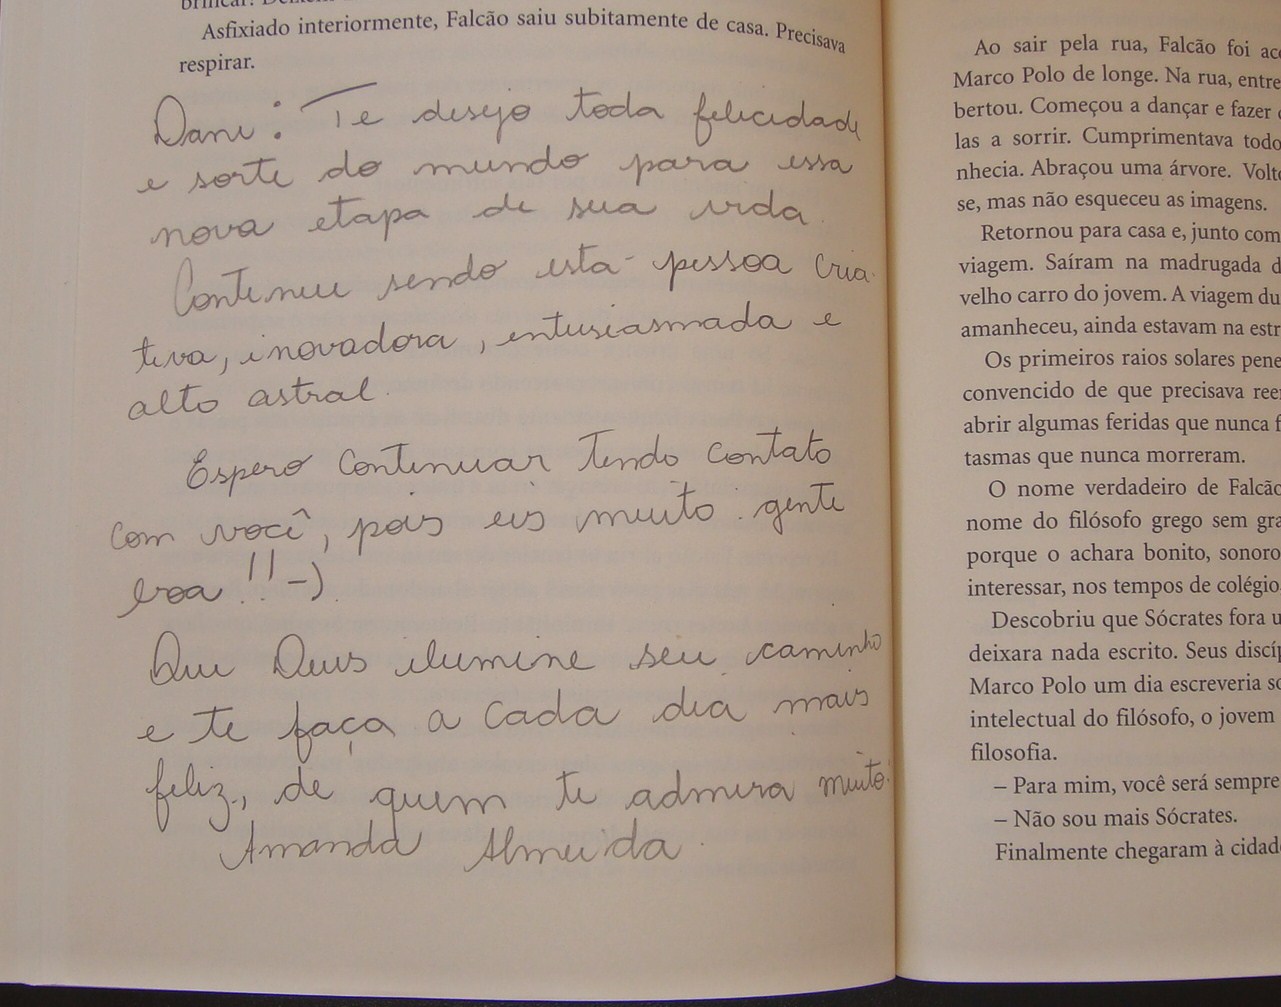 Asfixiado interiormente, Falcão saiu subitamente de casa. Precisava
respirar.
Dani: Te desejo toda felicidade
e sorte do mundo para essa
nova etapa de sua vida.
Continue sendo esta pessoa cria-
tiva, inovadora, entusiasmada e
alto astral.
Espero continuar tendo contato
com você, pois eis muito gente
boa!! -)
Que Deus ilumine seu caminho
e te faça a cada dia mais
feliz, de quem te admira muito!
Amanda Almeida.
Ao sair pela rua, Falcão foi aco
Marco Polo de longe. Na rua, entre
bertou. Começou a dançar e fazer
las a sorrir. Cumprimentava todo
nhecia. Abraçou uma árvore. Volto
se, mas não esqueceu as imagens.
Retornou para casa e, junto com
viagem. Saíram na madrugada d
velho carro do jovem. A viagem du
amanheceu, ainda estavam na estr
Os primeiros raios solares pene
convencido de que precisava ree
abrir algumas feridas que nunca f
tasmas que nunca morreram.
O nome verdadeiro de Falcão
nome do filósofo grego sem gra
porque o achara bonito, sonoro
interessar, nos tempos de colégio
Descobriu que Sócrates fora u
deixara nada escrito. Seus discíp
Marco Polo um dia escreveria so
intelectual do filósofo, o jovem
filosofia.
– Para mim, você será sempre
– Não sou mais Sócrates.
Finalmente chegaram à cidade